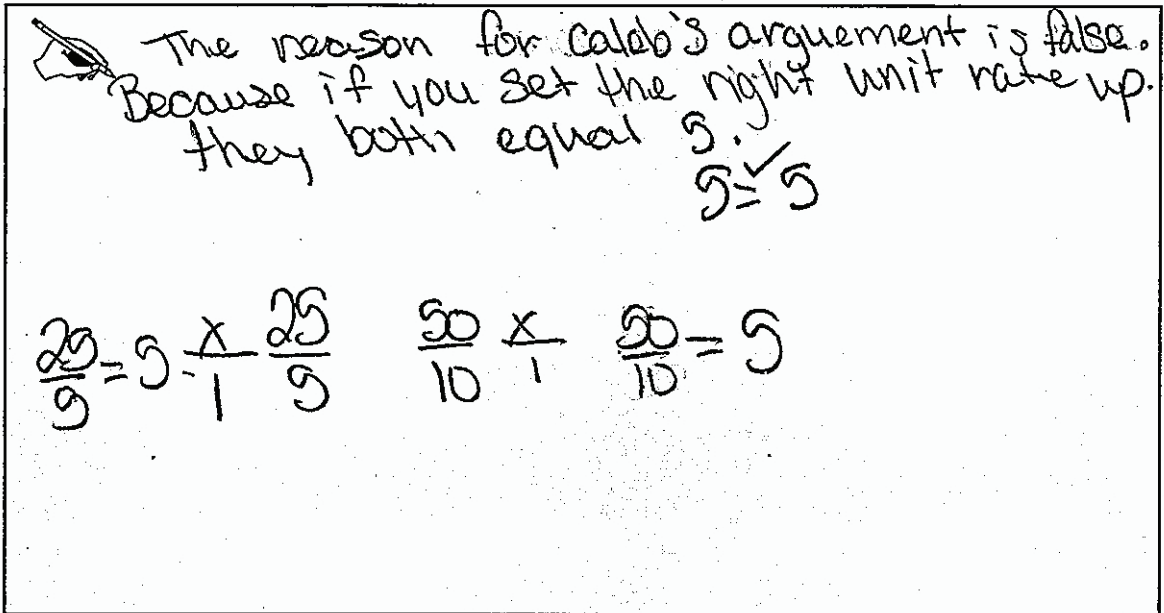 The reason for caleb's arguement is false.
Because if you set the right unit rate up.
they both equal 5.
5 = 5 ✓
25/5 = 5 = x/1 25/5 50/10 x/1 50/10 = 5